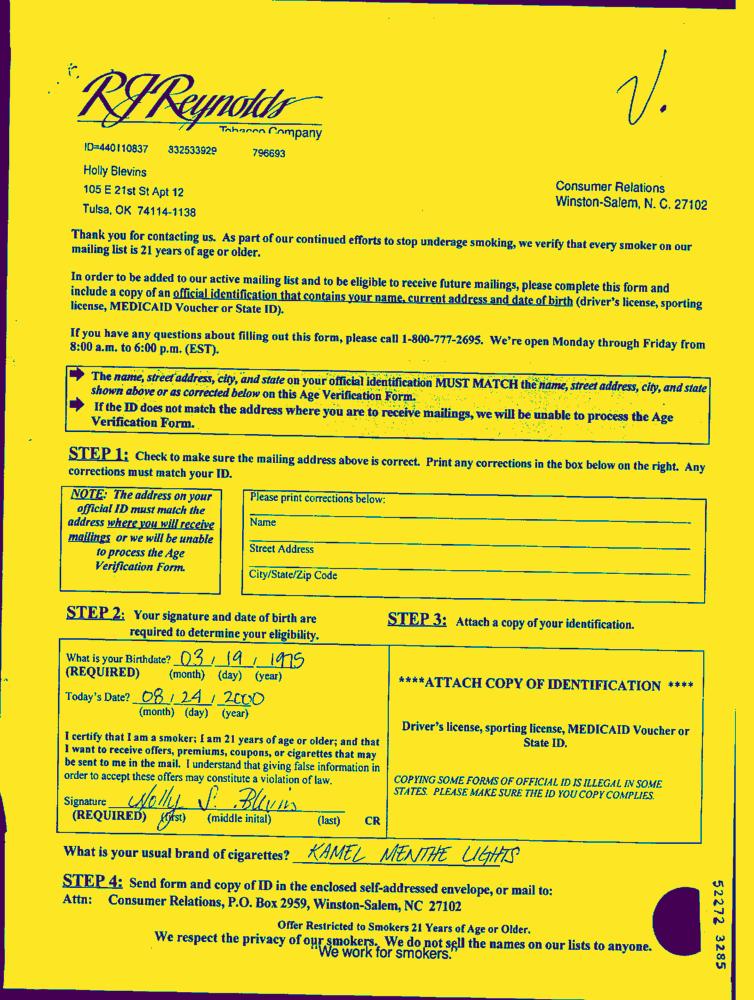 V.
RJReynolds
Tobacco Company
ID=440110837 832533929 796693
Holly Blevins
105 E 21st St Apt 12
Tulsa, OK 74114-1138
Consumer Relations
Winston-Salem, N. C. 27102
Thank you for contacting us. As part of our continued efforts to stop underage smoking, we verify that every smoker on our
mailing list is 21 years of age or older.
In order to be added to our active mailing list and to be eligible to receive future mailings, please complete this form and
include a copy of an official identification that contains your name, current address and date of birth (driver's license, sporting
license, MEDICAID Voucher or State ID).
If you have any questions about filling out this form, please call 1-800-777-2695. We're open Monday through Friday from
8:00 a.m. to 6:00 p.m. (EST).
The name, street address, city, and state on your official identification MUST MATCH the name, street address, city, and state
shown above or as corrected below on this Age Verification Form.
If the ID does not match the address where you are to receive mailings, we will be unable to process the Age
Verification Form.
STEP 1: Check to make sure the mailing address above is correct. Print any corrections in the box below on the right. Any
corrections must match your ID.
NOTE: The address on your
official ID must match the
address where you will receive
mailings or we will be unable
to process the Age
Verification Form.
Please print corrections below:
Name
Street Address
City/State/Zip Code
STEP 2: Your signature and date of birth are
required to determine your eligibility.
STEP 3: Attach a copy of your identification.
What is your Birthdate? 03 / 19 / 1975
(REQUIRED) (month) (day) (year)
Today's Date? 08 / 24 / 2000
(month) (day) (year)
I certify that I am a smoker; I am 21 years of age or older; and that
I want to receive offers, premiums, coupons, or cigarettes that may
be sent to me in the mail. I understand that giving false information in
order to accept these offers may constitute a violation of law.
Signature Holly S. Blevins
(REQUIRED) (first) (middle inital) (last) CR
****ATTACH COPY OF IDENTIFICATION ****
Driver's license, sporting license, MEDICAID Voucher or
State ID.
COPYING SOME FORMS OF OFFICIAL ID IS ILLEGAL IN SOME
STATES. PLEASE MAKE SURE THE ID YOU COPY COMPLIES.
What is your usual brand of cigarettes? KAMEL MENTHE LIGHTS
STEP 4: Send form and copy of ID in the enclosed self-addressed envelope, or mail to:
Attn: Consumer Relations, P.O. Box 2959, Winston-Salem, NC 27102
Offer Restricted to Smokers 21 Years of Age or Older.
We respect the privacy of our smokers. We do not sell the names on our lists to anyone.
"We work for smokers."
52272 3285